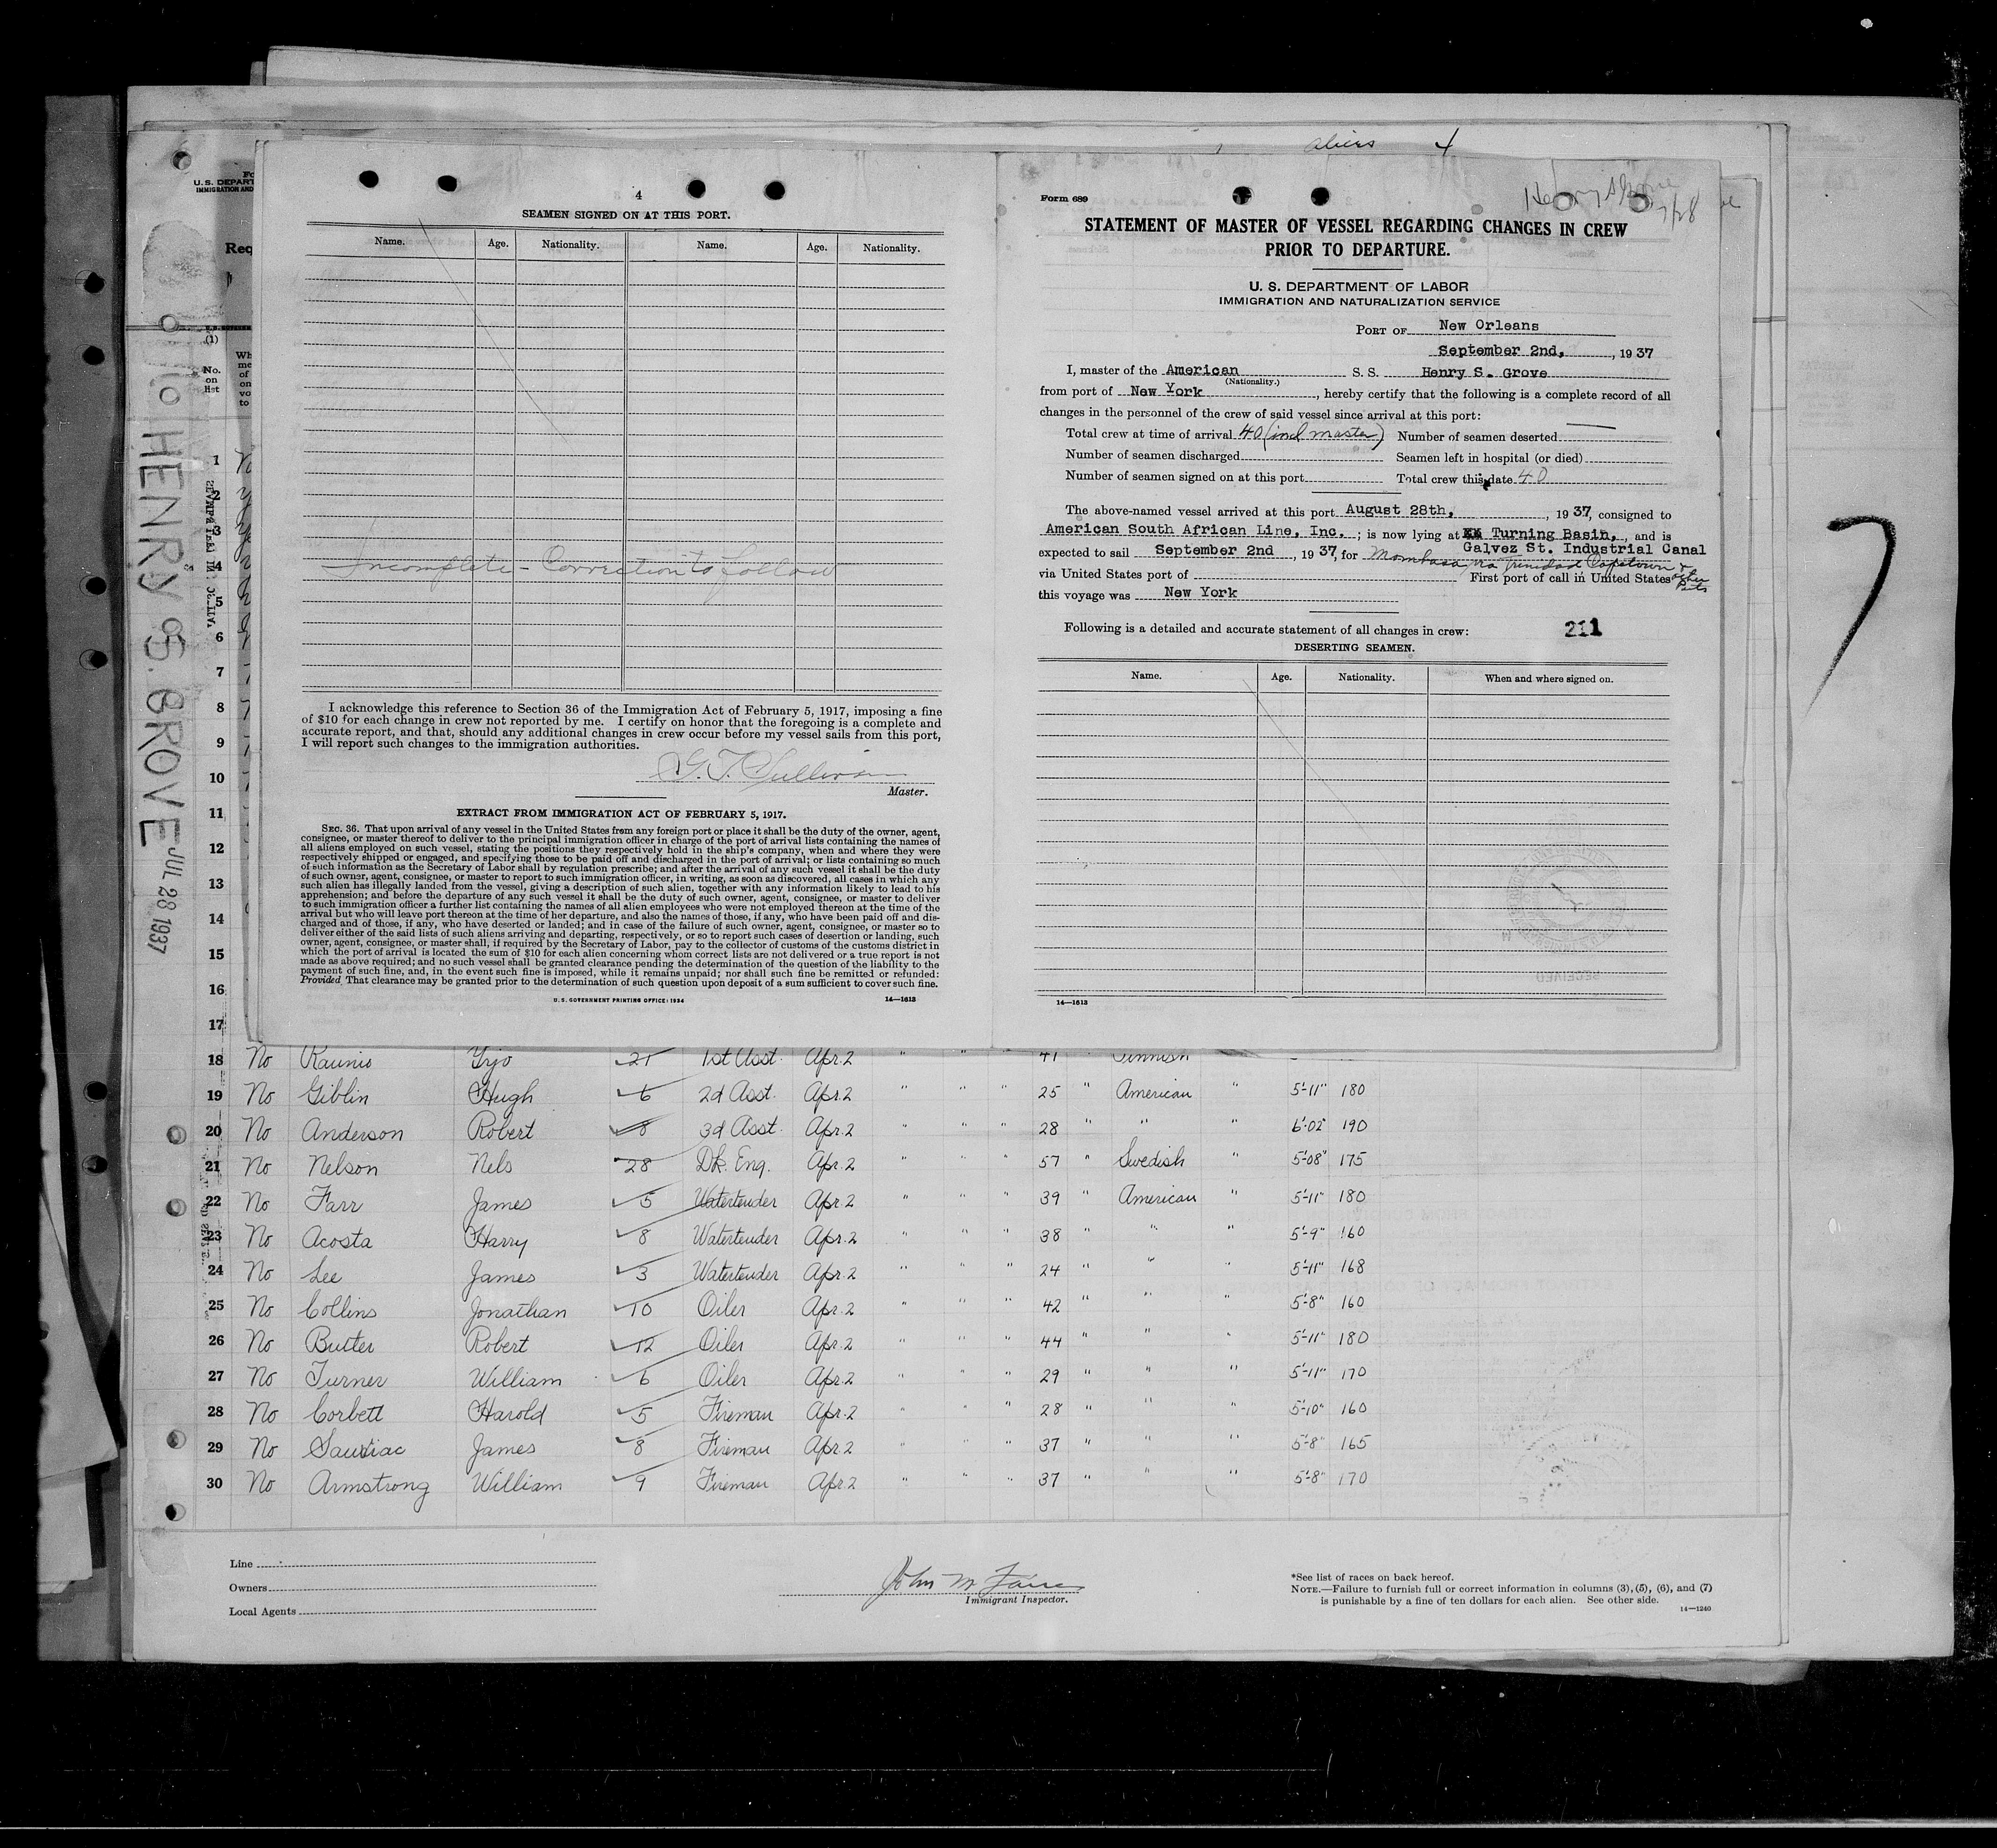 aliens 4
4
SEAMEN SIGNED ON AT THIS PORT.
Name. Age. Nationality. Name. Age. Nationality.
Incomplete - Correction to follow
I acknowledge this reference to Section 36 of the Immigration Act of February 5, 1917, imposing a fine
of $10 for each change in crew not reported by me. I certify on honor that the foregoing is a complete and
accurate report, and that, should any additional changes in crew occur before my vessel sails from this port,
I will report such changes to the immigration authorities.
G. T. Sullivan
Master.
EXTRACT FROM IMMIGRATION ACT OF FEBRUARY 5, 1917.
SEC. 36. That upon arrival of any vessel in the United States from any foreign port or place it shall be the duty of the owner, agent,
consignee, or master thereof to deliver to the principal immigration officer in charge of the port of arrival lists containing the names of
all aliens employed on such vessel, stating the positions they respectively hold in the ship's company, when and where they were
respectively shipped or engaged, and specifying those to be paid off and discharged in the port of arrival; or lists containing so much
of such information as the Secretary of Labor shall by regulation prescribe; and after the arrival of any such vessel it shall be the duty
of such owner, agent, consignee, or master to report to such immigration officer, in writing, as soon as discovered, all cases in which any
such alien has illegally landed from the vessel, giving a description of such alien, together with any information likely to lead to his
apprehension; and before the departure of any such vessel it shall be the duty of such owner, agent, consignee, or master to deliver
to such immigration officer a further list containing the names of all alien employees who were not employed thereon at the time of the
arrival but who will leave port thereon at the time of her departure, and also the names of those, if any, who have been paid off and dis-
charged and of those, if any, who have deserted or landed; and in case of the failure of such owner, agent, consignee, or master so to
deliver either of the said lists of such aliens arriving and departing, respectively, or so to report such cases of desertion or landing, such
owner, agent, consignee, or master shall, if required by the Secretary of Labor, pay to the collector of customs of the customs district in
which the port of arrival is located the sum of $10 for each alien concerning whom correct lists are not delivered or a true report is not
made as above required; and no such vessel shall be granted clearance pending the determination of the question of the liability to the
payment of such fine, and, in the event such fine is imposed, while it remains unpaid; nor shall such fine be remitted or refunded:
Provided, That clearance may be granted prior to the determination of such question upon deposit of a sum sufficient to cover such fine.
U. S. GOVERNMENT PRINTING OFFICE: 1934 14—1613
Form 689
7/28
STATEMENT OF MASTER OF VESSEL REGARDING CHANGES IN CREW
PRIOR TO DEPARTURE.
U. S. DEPARTMENT OF LABOR
IMMIGRATION AND NATURALIZATION SERVICE
PORT OF New Orleans
September 2nd, , 1937
I, master of the American S. S. Henry S. Grove
(Nationality.)
from port of New York , hereby certify that the following is a complete record of all
changes in the personnel of the crew of said vessel since arrival at this port:
Total crew at time of arrival 40 (incl master) Number of seamen deserted
Number of seamen discharged Seamen left in hospital (or died)
Number of seamen signed on at this port Total crew this date 40
The above-named vessel arrived at this port August 28th, , 1937, consigned to
American South African Line, Inc. ; is now lying at Turning Basin, , and is
Galvez St. Industrial Canal
expected to sail September 2nd , 1937, for Mombasa, via Trinidad Capetown + other Ports
via United States port of First port of call in United States
this voyage was New York
Following is a detailed and accurate statement of all changes in crew: 211
DESERTING SEAMEN.
Name. Age. Nationality. When and where signed on.
14—1613
RECEIVED
7
HENRY S. GROVE JUL 28 1937
U. S. DEPART
IMMIGRATION AND
Req
(1)
No. on list
1
2
3
4
5
6
7
8
9
10
11
12
13
14
15
16
17
18 No Raunio Yrjo 21 1st Asst. Apr. 2 " " " 41 Finnish
19 No Giblin Hugh 6 2d Asst. Apr. 2 " " " 25 " American " 5'-11" 180
20 No Anderson Robert 8 3d Asst. Apr. 2 " " " 28 " " " 6'-02" 190
21 No Nelson Nels 28 Dk. Eng. Apr. 2 " " " 57 " Swedish " 5'-08" 175
22 No Farr James 5 Watertender Apr. 2 " " " 39 " American " 5'-11" 180
23 No Acosta Harry 8 Watertender Apr. 2 " " " 38 " " " 5'-9" 160
24 No Lee James 3 Watertender Apr. 2 " " " 24 " " " 5'-11" 168
25 No Collins Jonathan 10 Oiler Apr. 2 " " " 42 " " " 5'-8" 160
26 No Butter Robert 12 Oiler Apr. 2 " " " 44 " " " 5'-11" 180
27 No Turner William 6 Oiler Apr. 2 " " " 29 " " " 5'-11" 170
28 No Corbett Harold 5 Fireman Apr. 2 " " " 28 " " " 5'-10" 160
29 No Sautiac James 8 Fireman Apr. 2 " " " 37 " " " 5'-8" 165
30 No Armstrong William 9 Fireman Apr. 2 " " " 37 " " " 5'-8" 170
Line
Owners
Local Agents
John M.
Immigrant Inspector.
*See list of races on back hereof.
NOTE.—Failure to furnish full or correct information in columns (3), (5), (6), and (7)
is punishable by a fine of ten dollars for each alien. See other side.
14—1240